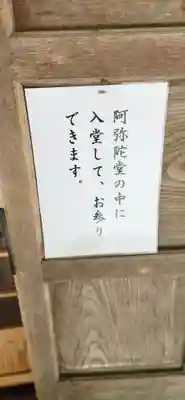 阿弥陀堂の中に
入堂して、お参り
できます。